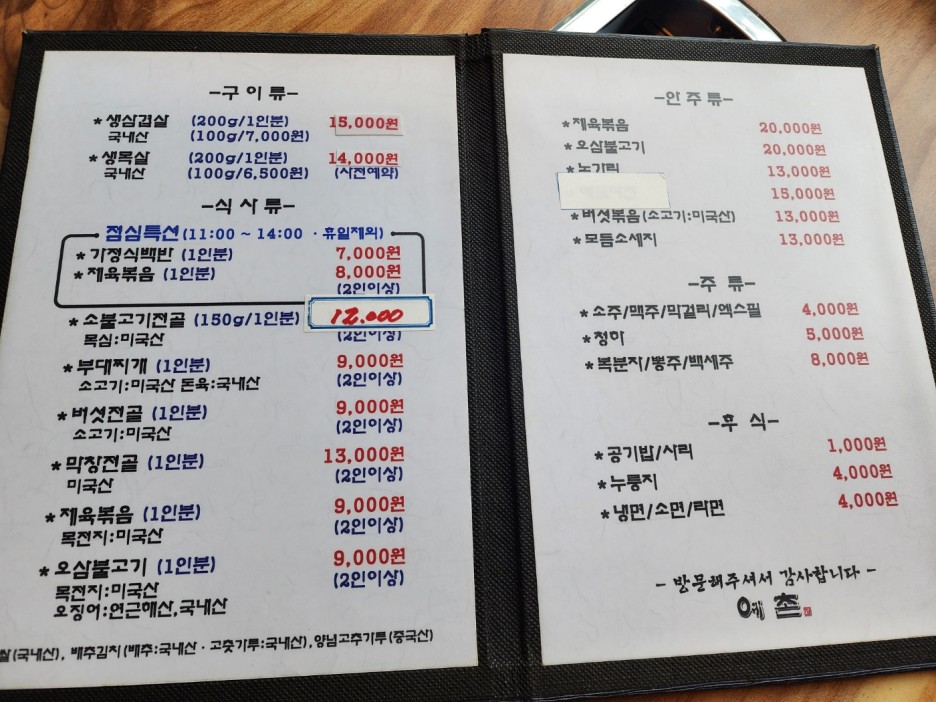 -구 이 류-
*생삼겹살 (200g/1인분) 15,000원
국내산 (100g/7,000원)
*생목살 (200g/1인분) 14,000원
국내산 (100g/6,500원) (사전예약)
-식 사 류-
점심특선 (11:00 ~ 14:00 · 휴일제외)
*가정식백반 (1인분) 7,000원
*제육볶음 (1인분) 8,000원
(2인이상)
*소불고기전골 (150g/1인분) 12.000
목심:미국산 (2인이상)
*부대찌개 (1인분) 9,000원
소고기:미국산 돈육:국내산 (2인이상)
*버섯전골 (1인분) 9,000원
소고기:미국산 (2인이상)
*막창전골 (1인분) 13,000원
미국산 (2인이상)
*제육볶음 (1인분) 9,000원
목전지:미국산 (2인이상)
*오삼불고기 (1인분) 9,000원
목전지:미국산 (2인이상)
오징어:연근해산,국내산
쌀(국내산), 배추김치(배추:국내산 · 고춧가루:국내산),양념고추가루(중국산)
-안 주 류-
*제육볶음 20,000원
*오삼불고기 20,000원
*노가리 13,000원
15,000원
*버섯볶음(소고기:미국산) 13,000원
*모듬소세지 13,000원
-주 류-
*소주/맥주/막걸리/엑스필 4,000원
*청하 5,000원
*복분자/뽕주/백세주 8,000원
-후 식-
*공기밥/사리 1,000원
*누룽지 4,000원
*냉면/소면/라면 4,000원
- 방문해주셔서 감사합니다 -
예촌